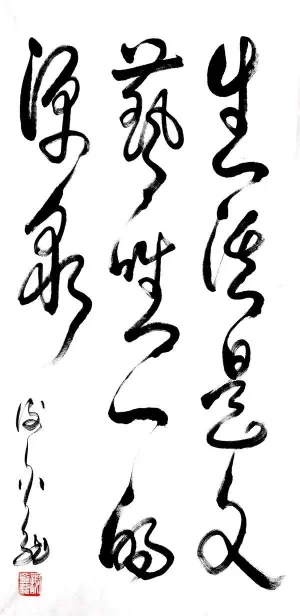 生活是文
藝唯一的
源泉